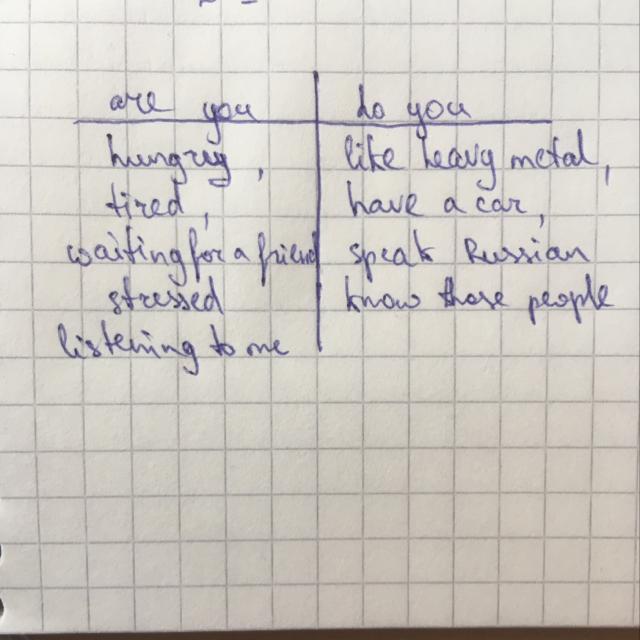 are you do you
hungry, like heavy metal,
tired, have a car,
waiting for a friend speak Russian
stressed know those people
listening to me